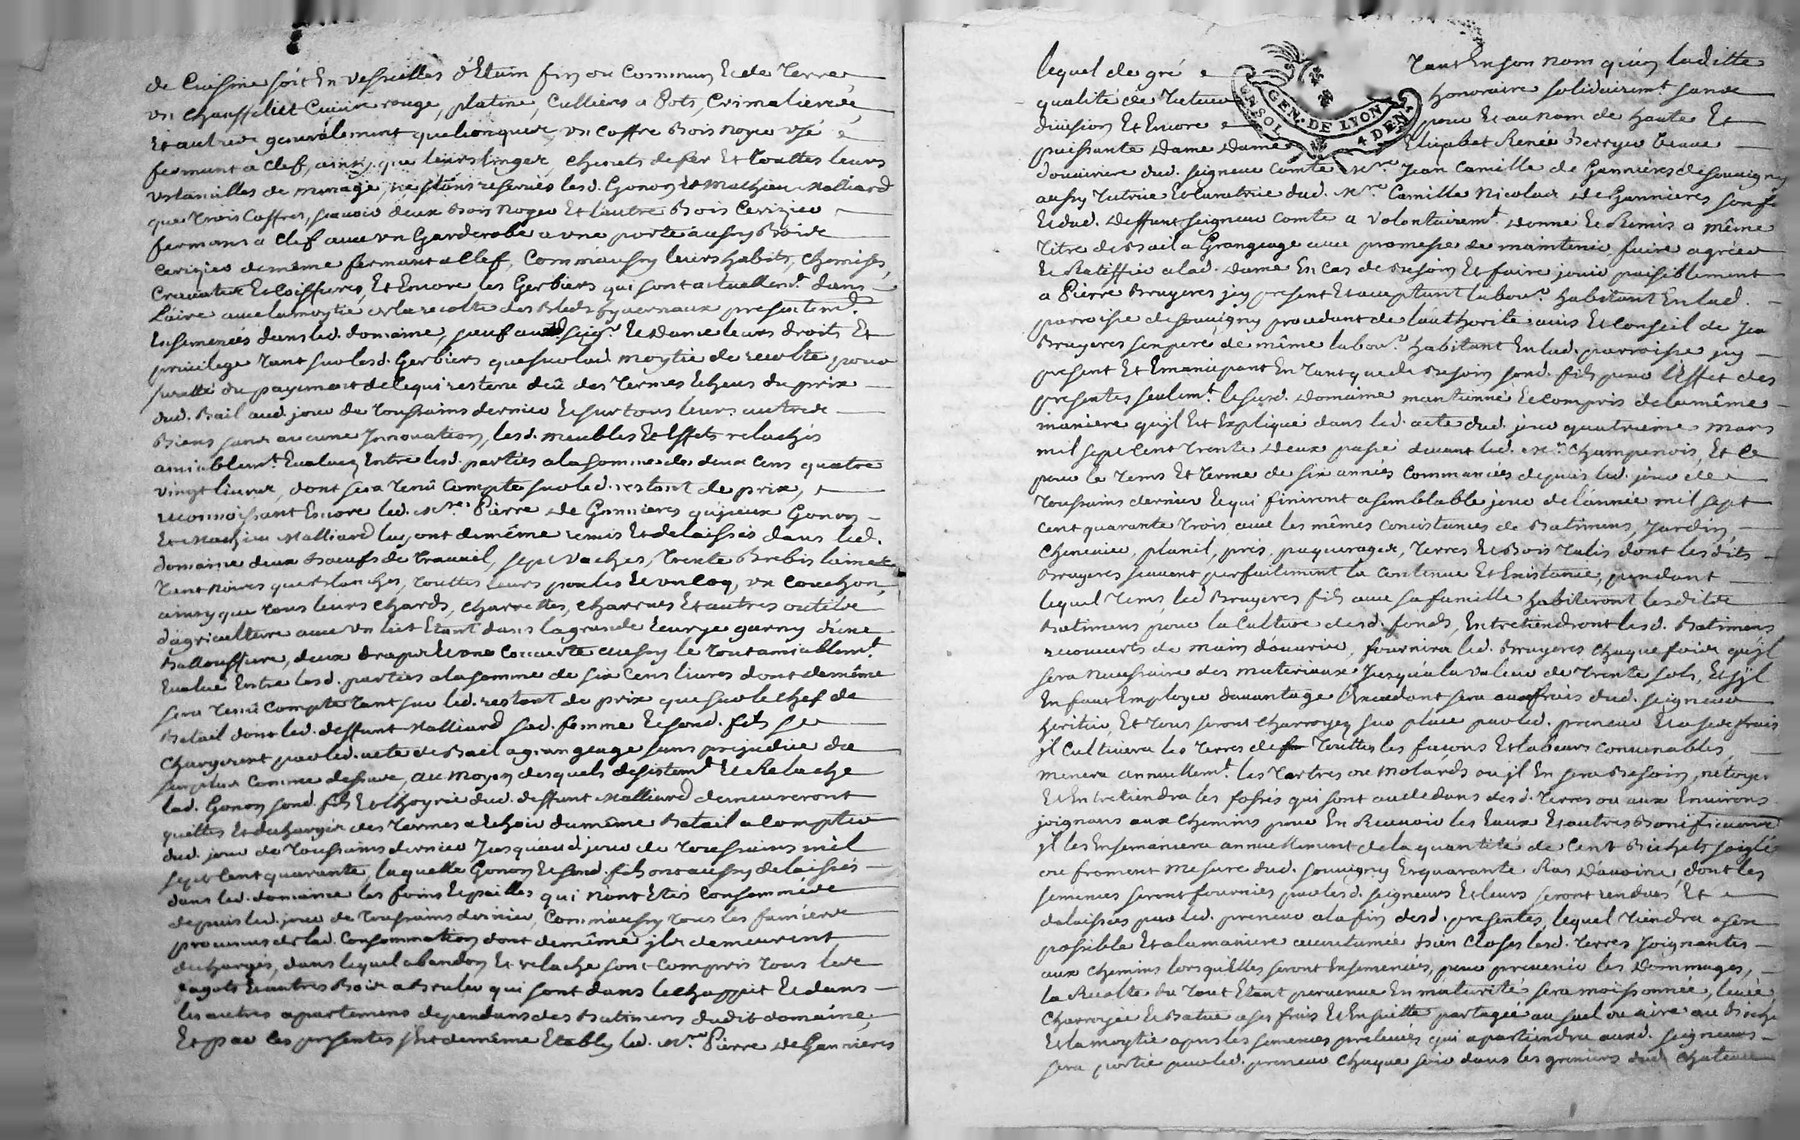 de Cuisine soit En vesselles d'Etain fin ou Commun Et de Terre,
un chauffelict Cuivre rouge, platine, Culliers a Pots, Crimaliere,
Et autres generalement quelconques un Coffre Bois Noyer usé
fermant a Clef, ainsy que leurs linges, chenets de fer Et touttes leurs
Ustancilles de menage, ne s'etans reservés lesd. Gonon Et Mathieu Malliard
que trois Coffres, scavoir deux Bois Noyer Et l'autre Bois Cerizier
fermans a Clef avec un Garderobe a une porte aussy Bois de
Cerizier de même fermant a Cleff, Comm'aussy leurs habits, Chemises,
Cravattes Et Coiffures, Et Encore les Gerbiers qui sont actuellemt. dans
L'aire avec la moytié de la recolte des Bleds hyvernaux presentemt.
Ensemencés dans led. domaine, sauf aud. seigr. Et Dame leurs droits Et
privilege tant sur lesd. Gerbiers que sur lad. moytié de recolte, pour
suretté du payement de ce qui restera deü des termes Echeus du prix
dud. Bail aud. jour de Toussains dernier Et sur tous leurs autres
Biens sans aucune Innovation, lesd. meubles Et Effets relachés
amiablemt. Evalués Entre lesd. parties a la somme de deux Cens quatre
vingt livres, dont sera tenü Compte sur led. restant de prix,
reconnoissant Encore led. Mre. Pierre De Gannieres que jceux Gonon
Et Mathieu Malliard luy ont de même remis Et delaissés dans led.
domaine deux Bœufs de travail, sept vaches, trente Brebis laine
tant noires que Blanches, touttes leurs poules Et un Coq, un Couchon,
ainsy que tous leurs Chards, Charrettes, Charrues Et autres outils
d'agriculture avec un lict Etant dans la grande Ecurye garny d'une
Balloussiere, deux draps Et une Couverte aussy le tout amiablemt.
Evalué Entre lesd. parties a la somme de six Cens livres dont de même
sera tenü Compte tant sur led. restant de prix que sur le Chef de
Betail dont led. deffunt Malliard sad. femme Et sond. fils se
Chargerent par led. acte de Bail a grangeage sans prejudice du
surplus Comme dessus, au moyen desquels desistemt. Et Relache
lad. Gonon sond. fils Et l'hoyrie dud. deffunt Malliard demeureront
quittes Et dechargés des termes a Echoir du même Betail a Compter
dud. jour de Toussains dernier Jusqu'aud. jour de Toussains mil
sept Cent quarante, laquelle Gonon Et sond. fils ont aussy delaissés
dans led. domaine les foins Et pailles qui n'ont Etés Consommés
depuis led. jour de Toussains dernier, Comm'aussy tous les fumiers
provenus de lad. Consommation dont de même jls demeurent
dechargés, dans lequel abandon Et relache sont Compris tous les
fagots Et autres Bois a bruler qui sont dans le chappit Et dans
les autres apartemens dependans des Batimens dudit domaine,
Et par Ces presentes s'est de même Etably led. Mre. Pierre de Gannieres
lequel de gré Tant En son nom qu'En laditte
qualité de Tuteur honoraire solidairemt. sans
division Et Encore pour Et au nom de haute Et
puissante Dame Dame Elizabet Renée Berryer Veuve
douairiere dud. seigneur Comte Mre. Jean Camille de Gannieres de souvigny
aussy Tutrice Et Curatrice dud. Mre. Camille Nicolas De Gannieres son fils
Et dud. Deffunt seigneur Comte a volontairemt. Donné Et Remis a même
Titre de Bail a Grangeage avec promesses de maintenir faire agréer
Et Ratiffier a lad. Dame En Cas de Besoin Et faire jouir paisiblement
a Pierre Bruyeres jcy present Et acceptant labour. habitant En lad.
parroisse de souvigny procedant de l'authorité avis Et Conseil de Jean
Bruyeres son pere de même labour. habitant En lad. parroisse jcy
present Et Emancipant En tant que de Besoin sond. fils pour l'Effet des
presentes seulemt. le susd. Domaine mantionné Et Compris de la même
maniere qu'jl Est Expliqué dans led. acte dud. jour quatrieme Mars
mil sept Cent trente Deux passé devant led. Me. Champenois, Et Ce
pour le Tems Et terme de six années Commancées depuis led. jour de
Toussains dernier Et qui finiront a semblable jour de l'année mil sept
Cent quarante trois avec les mêmes Concistances de Batimens, Jardin,
Chenevier, planil, prés, paquerages, Terres Et Bois Talis dont lesdits
Bruyeres scavent parfaitement la Contenue Et Existance, pendant
lequel Tems, led. Bruyeres fils avec sa famille habiteront lesdits
Batimens pour la Culture desd. fonds, Entretiendront lesd. Batimens
recouverts de main d'ouvrier, fournira led. Bruyeres chaque fois qu'jl
sera Necessaire des materiaux Jusqu'a la valeur de trente sols, Et s'jl
En faut Employer davantage l'Excedant sera aux frais dud. seigneur
heritier, Et tous seront Charroyés sur place par led. preneur Et a ses frais
jl Cultivera les terres de touttes les façons Et labeurs Convenables,
menera annuellemt. les Tartres ou Molards ou jl En sera Besoin, nétoyer
Et Entretiendra les fossés qui sont au dedans desd. Terres ou aux Environs
joignans aux Chemins pour En Recevoir les Eaux Et autres Bonificences
jl les Ensemencera annuellement de la quantité de Cent Bichets soigle
ou froment mesure dud. Souvigny Et quarante Ras d'avoine, dont les
semences seront fournies par lesd. seigneurs Et leurs seront rendues Et
delaissées par led. preneur a la fin desd. presentes, lequel tiendra a son
possible Et a la maniere accoutumée bien Closes lesd. Terres joignantes
aux Chemins lorsqu'Elles seront Ensemencées, pour prevenir les Dommages,
la Recolte du tout Etant parvenue En maturité sera moissonnée, levée,
Charroyée Et Battue a ses frais Et Ensuitte partagée au suel ou aire
Et la moytié apres les semences prelevées qui apartiendra auxd. seigneurs
sera portée par led. preneur Chaque soir dans les greniers dud. chateau
GEN. DE LYON
4 DEN.